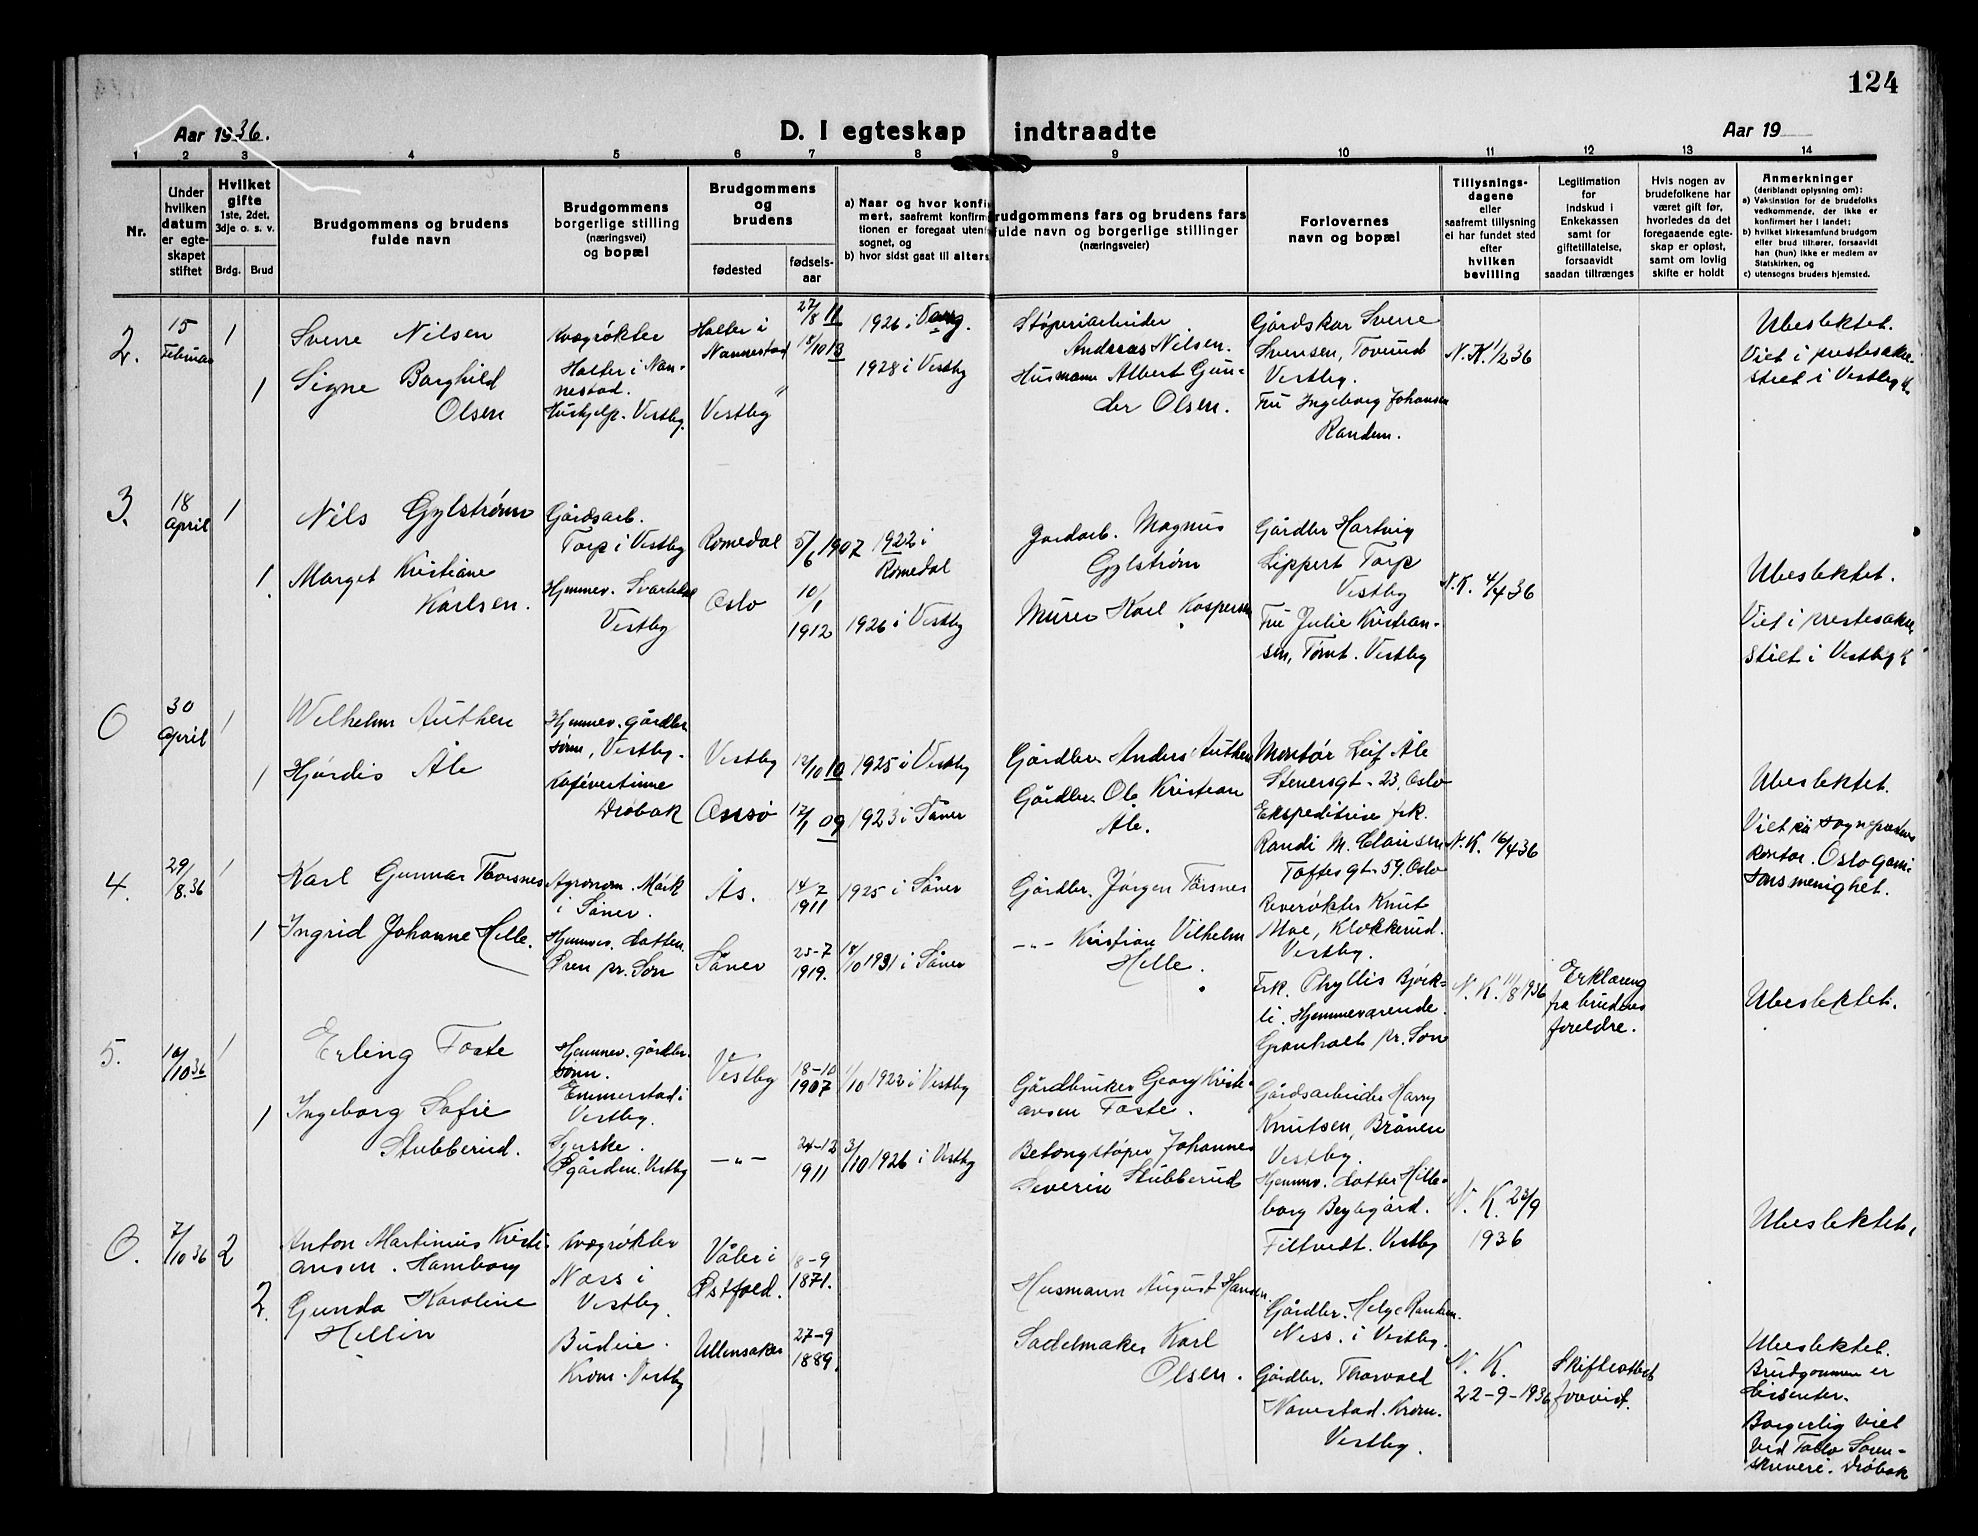 124
Aar 1936.
D. I egteskap indtraadte
Aar 19
1 2 3 4 5 6 7 8 9 10 11 12 13 14
Nr.
Under
hvilken
datum
er egte-
skapet
stiftet
Hvilket
gifte
1ste, 2det,
3dje o. s. v.
Brdg. Brud
Brudgommens og brudens
fulde navn
Brudgommens
borgerlige stilling
(næringsvei)
og bopæl
Brudgommens
og
brudens
fødested
fødsels-
aar
a) Naar og hvor konfir
mert, saafremt konfirm
tionen er foregaat uten
sognet, og
b) hvor sidst gaat til alters
rudgommens fars og brudens fars
fulde navn og borgerlige stillinger
(næringsveier)
Forlovernes
navn og bopæl
Tillysnings-
dagene
eller
saafremt tillysning
ei har fundet sted
efter
hvilken
bevilling
Legitimation
for
indskud i
Enkekassen
samt for
giftetillatelse,
forsaavidt
saadan tiltrænges
Hvis nogen av
brudefolkene har
været gift før,
hvorledes da det
foregaaende egte-
skap er opløst,
samt om lovlig
skifte er holdt
Anmerkninger
(deriblandt oplysning om):
a) Vaksinstion for de brudefolks
vedkommende, der ikke er
konfirmert her i landet;
b) hvilket kirkesamfund brudgom
eller brud tilhører, forsaavidt
han (hun) ikke er medlem av
Statskirken, og
c) utensogns bruders hjemsted.
2.
15
Februar
1
1
Sverre Nilsen
Signe Borghild
Olsen
Kvægrøkter
Holter i Nan-
nestad.
Hushjelp. Vestby.
Holter i
Nannestad
Vestby
27/8 11
18/10 13
1926 i
1928 i Vestby
Støperiarbeider
Andreas Nilsen.
Husmann Albert Gun-
der Olsen.
Gårdskar Sverre
Svensen, Tovund
Vestby.
Fru Ingeborg Johansen
Randem.
N.K. 1/2 36
Ubeslektet.
Viet i prestesakri
stiet i Vestby K
3.
18
April
1
1.
Nils Gylstrøm
Marget Kristiane
Karlsen.
Gårdsarb.
Torp i Vestby
Hjemmev.
Vestby
Romedal
Oslo
5/6 1907
10/1
1912
1922 i
Romedal
1926 i Vestby
Jordarb. Magnus
Gylstrøm
Murer Karl Kaspersen
Gårdbr Hartvig
Lippert Torp
Vestby
Fru Julie Kristian-
sen, Tømt. Vestby
N.K. 4/4 36
Ubeslektet.
Viet i prestesakri
stiet i Vestby K
0
30
April
1
1
Wilhelm Authen
Hjørdis Åle
Hjemmev. gårdbr
sønn, Vestby.
Kafévertinne
Drøbak
Vestby
12/10 10
12/1 09
1925 i Vestby
1923 i Såner
Gårdbr. Anders Authen
Gårdbr. Ole Kristian
Åle.
Montør Leif Åle
Stenersgt. 23, Oslo
Ekspeditrise frk.
Randi M. Clausen
Toftesgt. 59. Oslo
N.K. 16/4 36
Ubeslektet.
Viet på sogneprestens
Kontor. Oslo garni
sonsmenighet.
4.
29/8.36
1
1
Karl Gunnar Thorsnes
Ingrid Johanne Hille.
Agronom. Mørk
i Såner.
Hjemmev. datter.
Øren pr. Son
Ås.
Såner
14/2
1911
25-7
1919.
1925 i Såner
/10 1931 i Såner
Gårdbr. Jørgen Torsnes
-"- Kristian Vilhelm
Hille.
Reverøkter Knut
Moe, Klokkerud.
Vestby.
Frk. Phyllis Bjørk-
li. Hjemmeværende.
Granholt pr. Son
N.K. 11/8 1936
Erklæring
fra brudens
foreldre.
Ubeslektet.
5.
10/10 36
1
1
Erling Foste
Ingeborg Sofie
Stubberud.
Hjemmev. gårdbr.
sønn.
Emmerstad i
Vestby.
Syerske.
Øgården. Vestby
Vestby
-"-
18-10
1907
24-12
1911
1/10 1922 i Vestby
3/10 1926 i Vestby
Gårdbruker Georg Kristi-
ansen Foste.
Betongstøper Johannes
Severin Stubberud
Gårdsarbeider Harry
Knutsen, Brånen
Vestby.
Hjemmv. datter Hille-
borg Beylegård.
Filtvedt. Vestby
N. K. 23/9
1936
Ubeslektet.
0.
7/10 36
2
2.
Anton Martinius Kristi-
ansen. Hamborg
Gunda Karoline
Hellin
Kvægrøkter
Næss i
Vestby.
Budeie.
Krom. Vestby
Våler i
Østfold.
Ullensaker
8-9
1871.
27-9
1889.
Husmann August Hansen.
Sadelmaker Karl
Olsen.
Gårdbr. Helge Randem.
Ness. i Vestby.
Gårdbr. Thorvald
Navestad. Krom.
Vestby.
N. K.
22-9-1936
Skifteattest
forevist.
Ubeslektet.
Brudgommen er
dissenter.
Borgerlig viet
ved Follo Soren-
skriveri. Drøbak